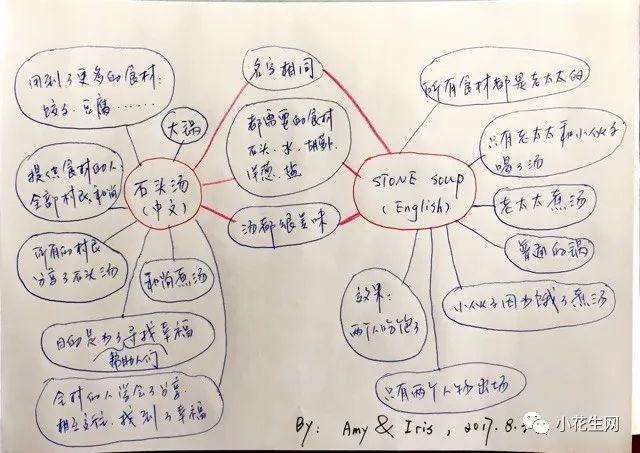 用到了更多的食材.
饺子、豆腐……
大锅
名字相同
所有食材都是老太太的
都需要的食材
石头、水、胡萝卜
洋葱、盐
只有老太太和小伙子
喝了汤
提供食材的人:
全部村民、和尚
石头汤
(中文)
STONE SOUP
(English)
老太太煮汤
汤都很美味
普通的锅
所有的村民
分享了石头汤
和尚煮汤
效果:
两个人吃饱了
小伙子因为饿了煮汤
目的是为了寻找幸福
帮助人们
只有两个人物出场
全村的人学会了分享
相互交往、找到了幸福
By: Amy & Iris, 2017.8.
小花生网